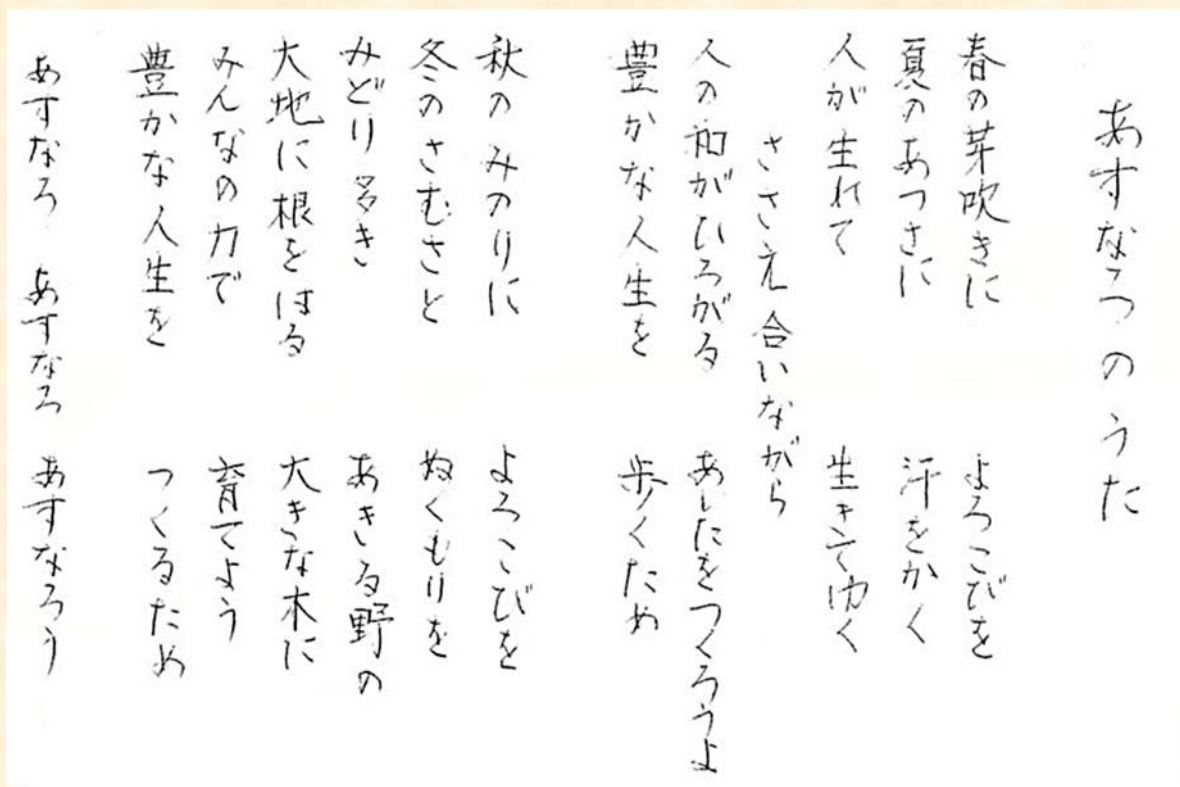 あすなろのうた
春の芽吹きに　よろこびを
夏のあつさに　汗をかく
人が生れて　生きてゆく
ささえ合いながら
人の和がひろがる　あしたをつくろうよ
豊かな人生を　歩くため
秋のみのりに　よろこびを
冬のさむさと　ぬくもりを
みどり多き　あきる野の
大地に根をはる　大きな木に
みんなの力で　育てよう
豊かな人生を　つくるため
あすなろ　あすなろ　あすなろう